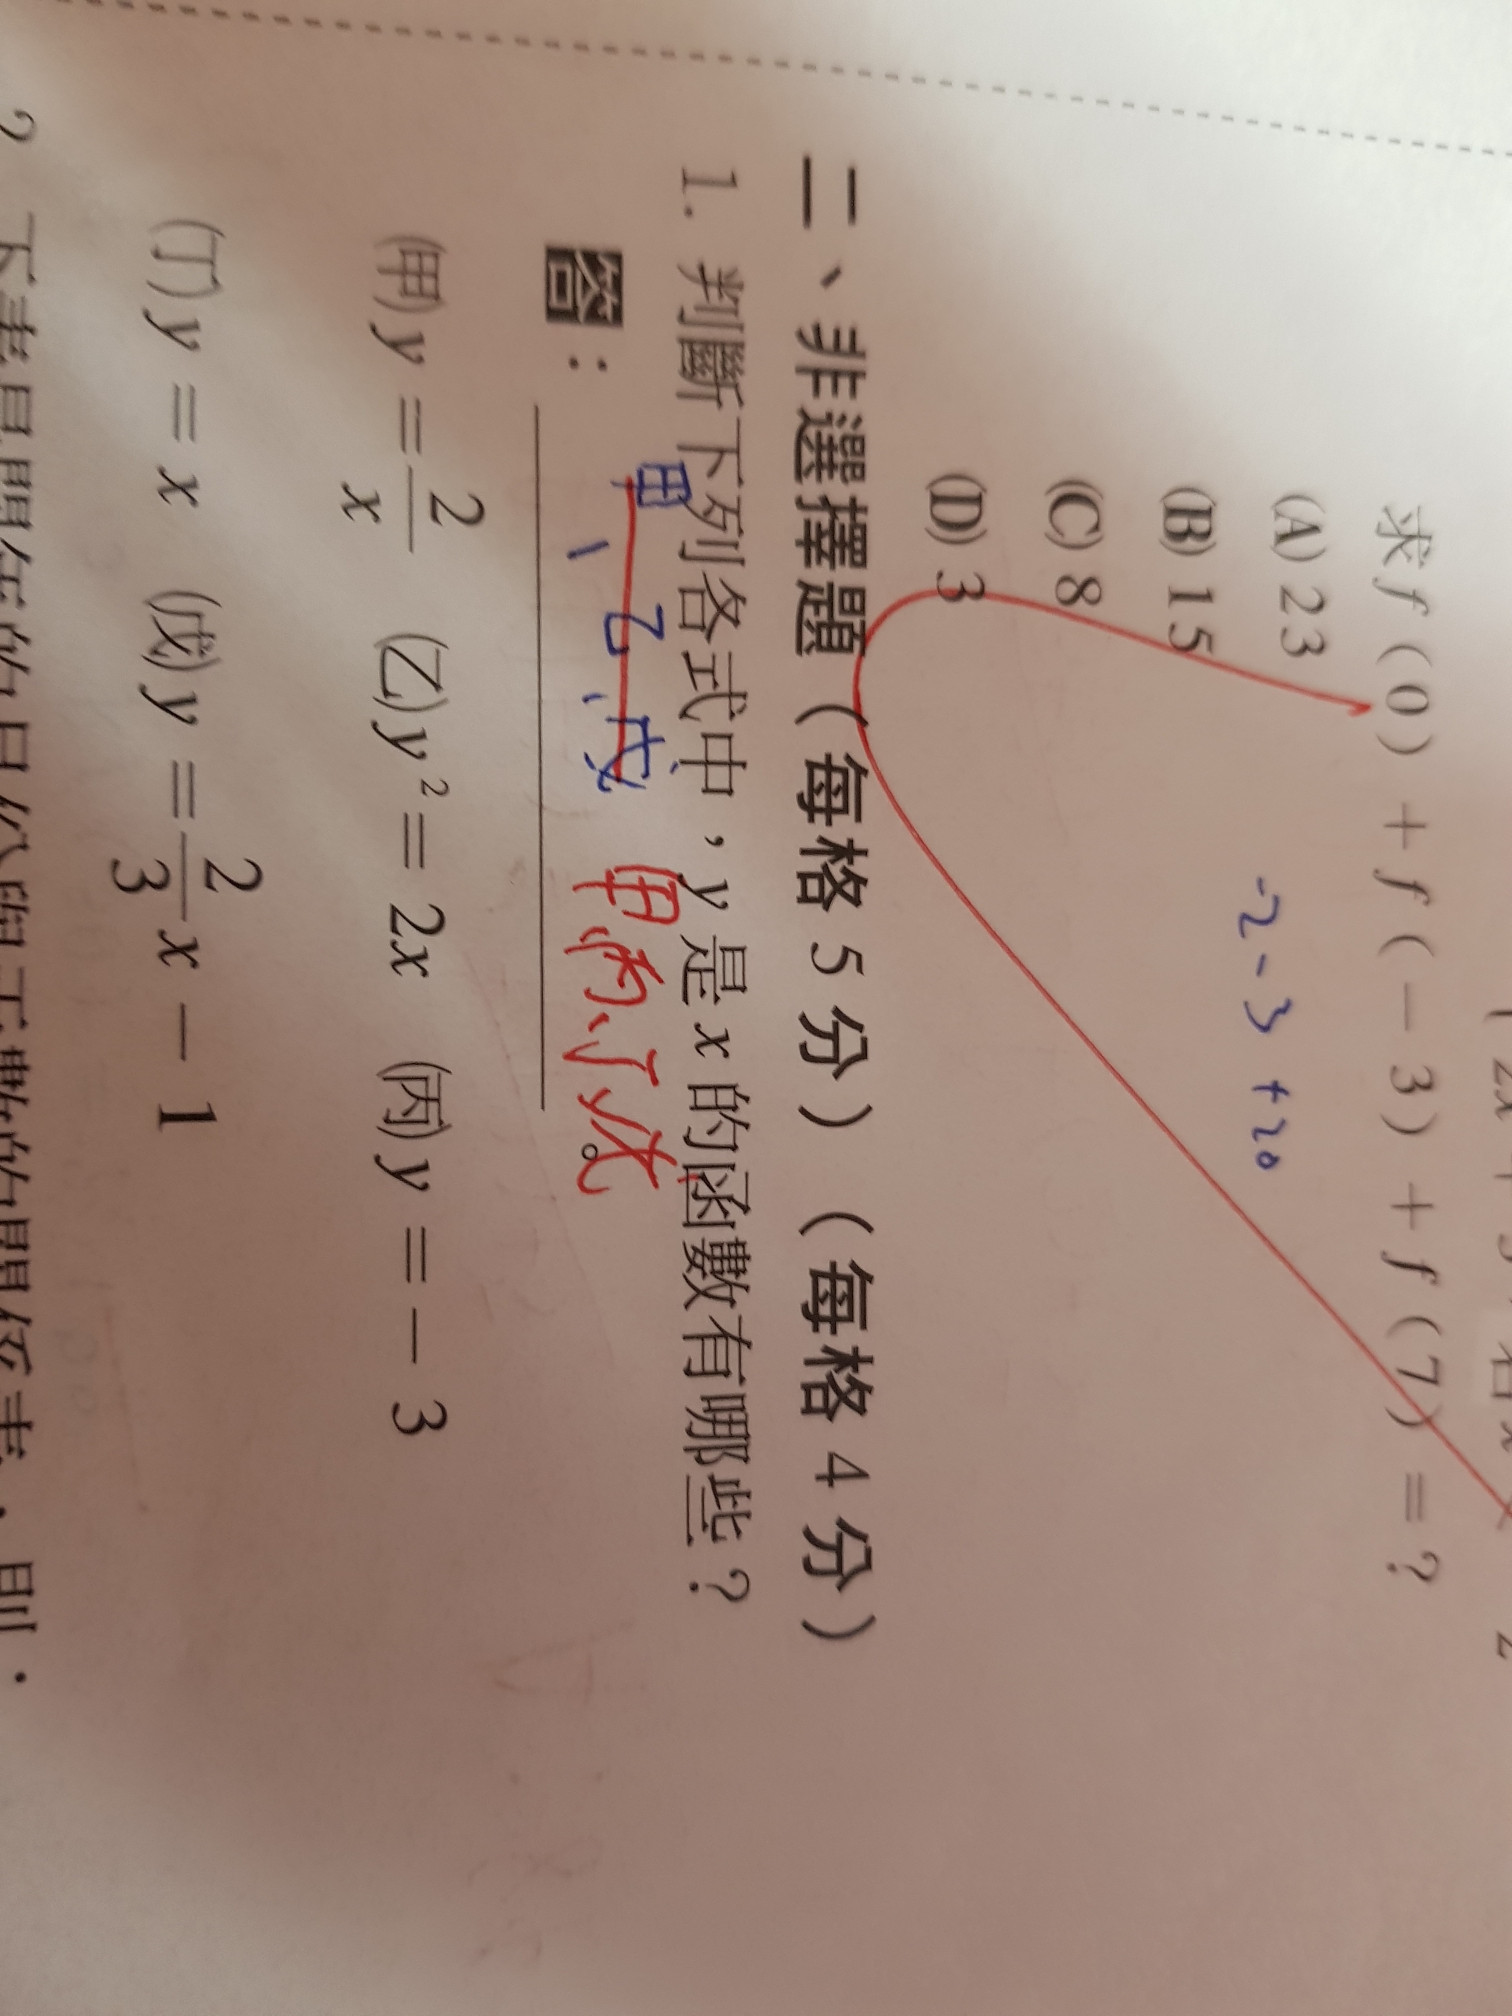 求 f（0）＋f（－3）＋f（7）＝？
(A) 23
-2-3+20
(B) 15
(C) 8
(D) 3
二、非選擇題（每格 5 分）（每格 4 分）
1. 判斷下列各式中，y 是 x 的函數有哪些？
答： 甲、乙、戊 甲、丙、丁、戊
(甲) y = 2/x (乙) y² = 2x (丙) y = －3
(丁) y = x (戊) y = 2/3 x － 1
2. 下表是閏年的月份與天數的關係表，則：